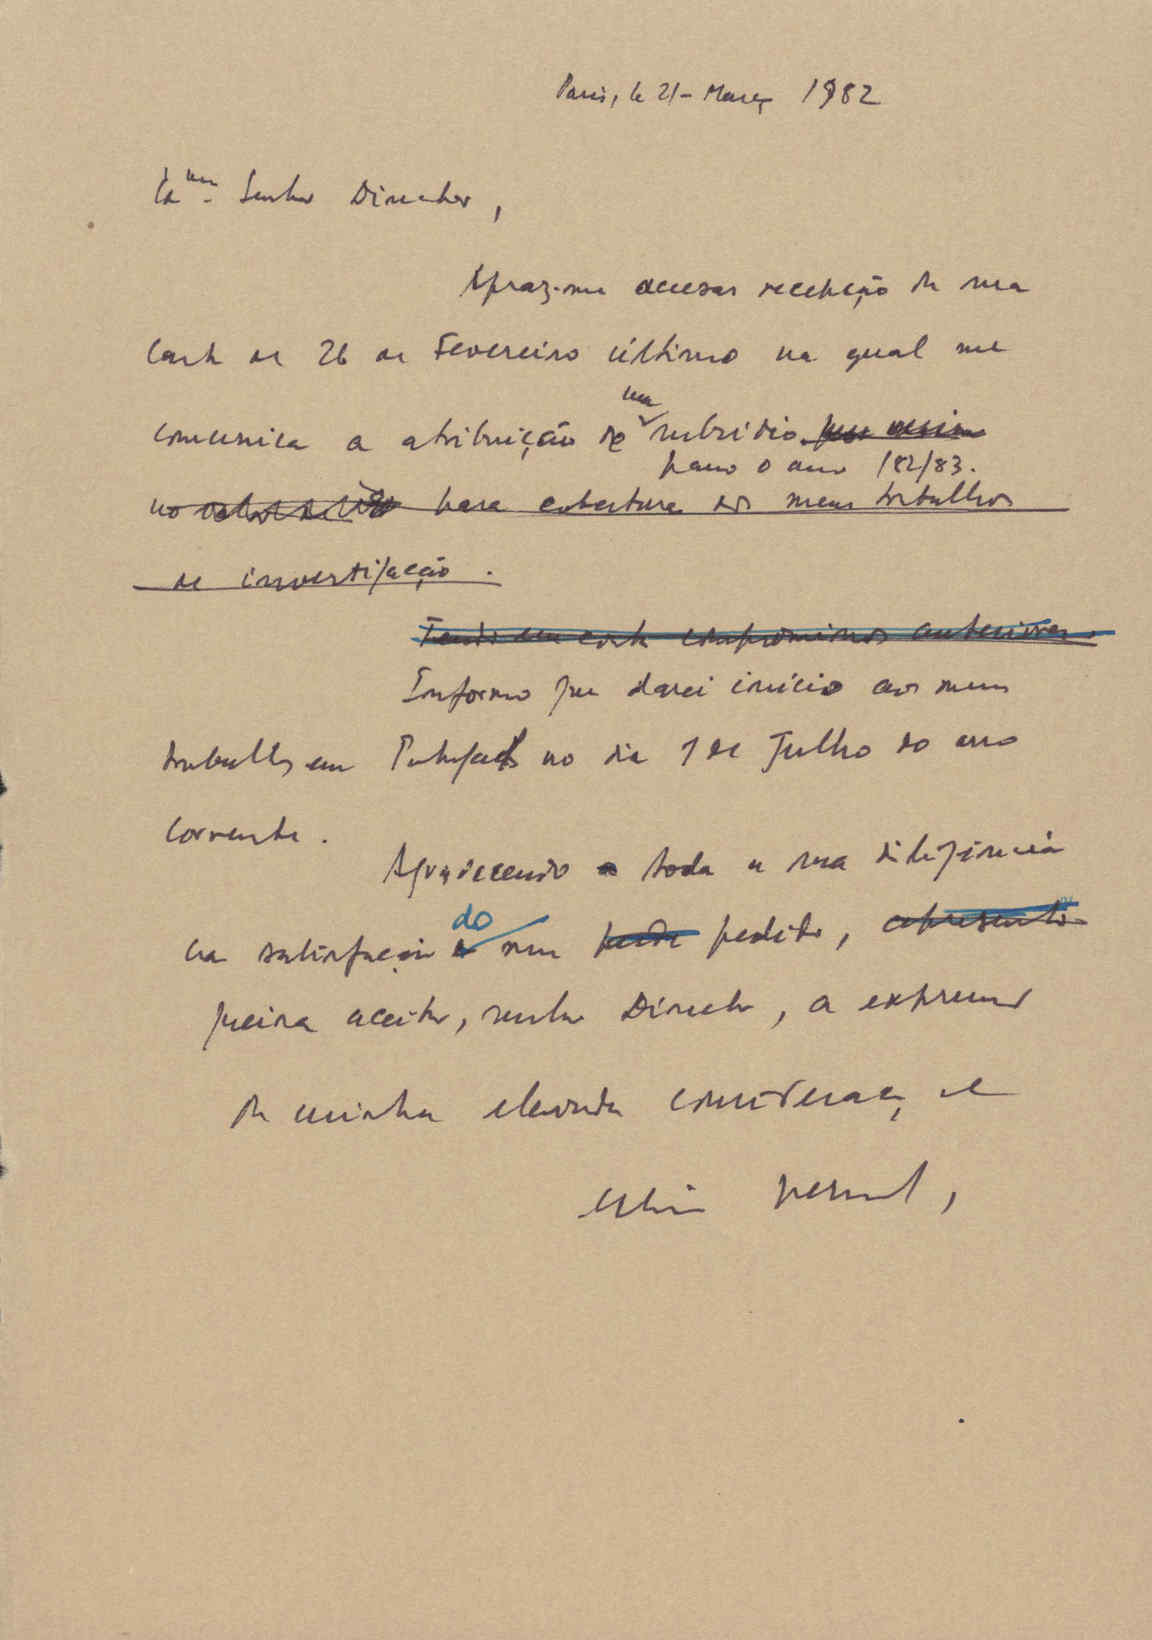 Paris, le 21 - Março 1982
Exmo. Senhor Director,
Apraz-me acusar recepção da sua
carta de 26 de Fevereiro último na qual me
um
comunica a atribuição de subsídio
para o ano 182/83.
no para cobertura dos meus trabalhos
de investigação.
Tendo em conta compromissos anteriores.
Informo que darei início aos meus
trabalhos em Portugal no dia 1 de Julho do ano
corrente.
Agradecendo toda a sua diligência
do
na satisfação meu pedido, apresento
queira aceitar, senhor Director, a expressão
da minha elevada consideração e
estima pessoal,